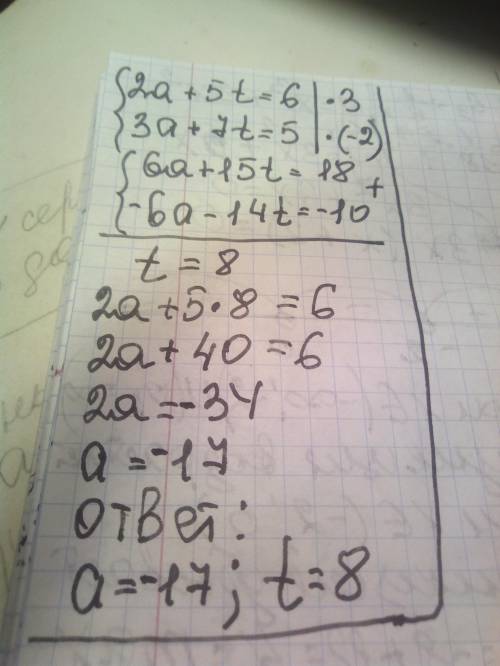 {2a + 5t = 6 | · 3
{3a + 7t = 5 | · (-2)
{6a + 15t = 18 +
{-6a - 14t = -10
t = 8
2a + 5 · 8 = 6
2a + 40 = 6
2a = -34
a = -17
Ответ:
a = -17; t = 8